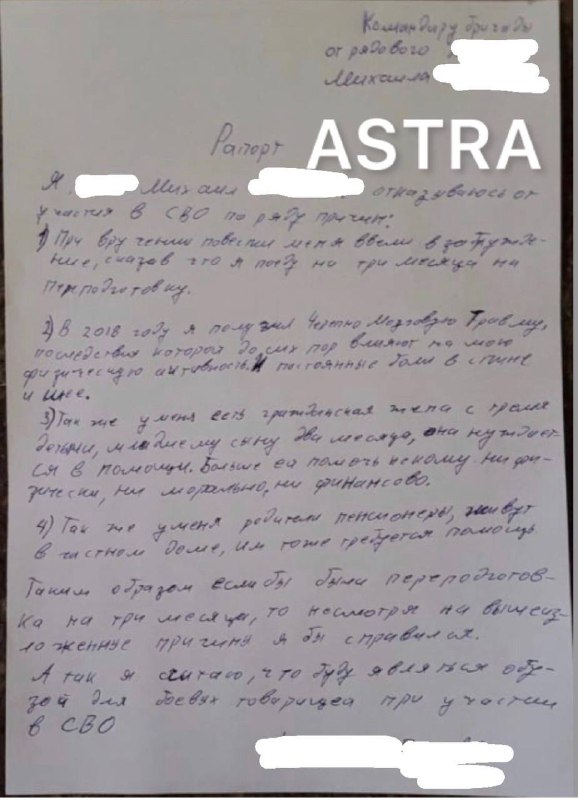 Командиру бригады
от рядового
Михаила
Рапорт
ASTRA
Я, Михаил , отказываюсь от
участия в СВО по ряду причин:
1) При вручении повестки меня ввели в заблужде-
ние, сказав что я поеду на три месяца на
переподготовку.
2) В 2018 году я получил Черепно Мозговую Травму,
последствия которой до сих пор влияют на мою
физическую активность. И постоянные боли в спине
и шее.
3) Так же у меня есть гражданская жена с тремя
детьми, младшему сыну два месяца, она нуждает-
ся в помощи. Больше ей помочь некому ни фи-
зически, ни морально, ни финансово.
4) Так же у меня родители пенсионеры, живут
в частном доме, им тоже требуется помощь
Таким образом если бы были переподготов-
ка на три месяца, то несмотря на вышеиз-
ложенные причины я бы справился.
А так я считаю, что буду являться обу-
зой для боевых товарищей при участии
в СВО